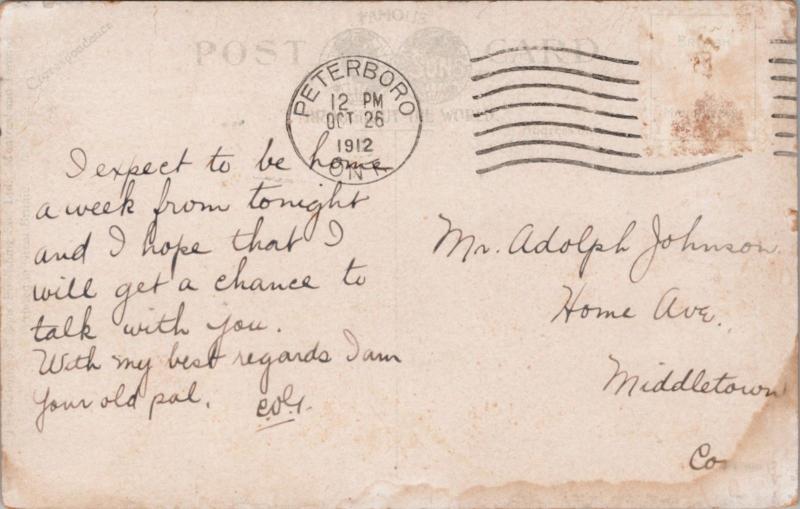 FAMOUS
POST CARD
Correspondence
PETERBORO
12 PM
OCT 26
1912
ONT
I expect to be home
a week from tonight
and I hope that I
will get a chance to
talk with you.
With my best regards I am
Your old pal.
Mr. Adolph Johnson
Home Ave.
Middletown
Co